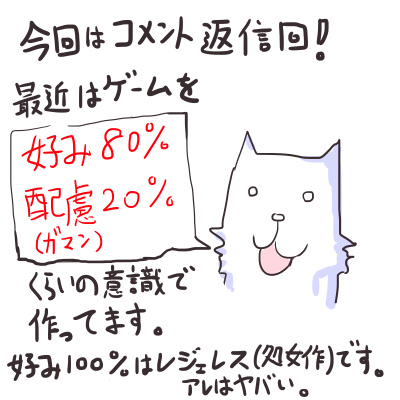 今回はコメント返信回!
最近はゲームを
好み80%
配慮20%
(ガマン)
くらいの意識で
作ってます。
好み100%はレジェレス(処女作)です。
アレはヤバい。